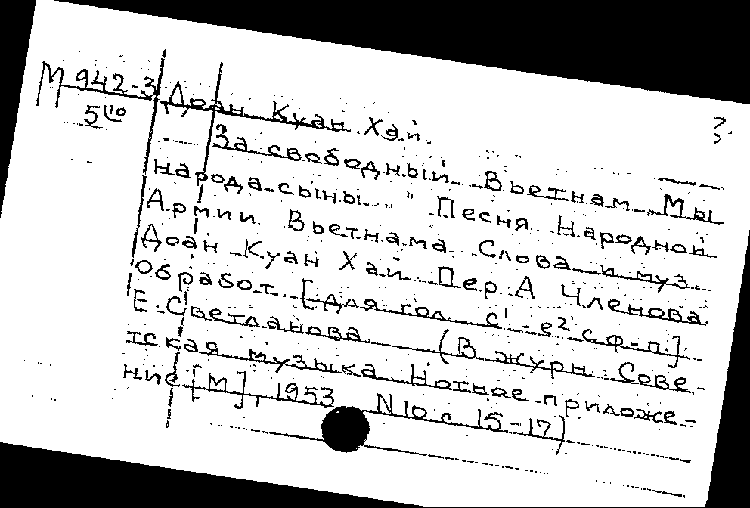 М 942-3
5
Доан Куан Хай.
З
За свободный Вьетнам Мы
народа-сыны " Песня Народной
Армии Вьетнама Слова и муз.
Доан Куан Хай Пер. А Членова
Обработ. [для гол. c¹-e² с ф-п.]
Е. Светланова (В журн. Сове-
тская музыка Нотное приложе-
ние [М], 1953 N 10 с 15-17)